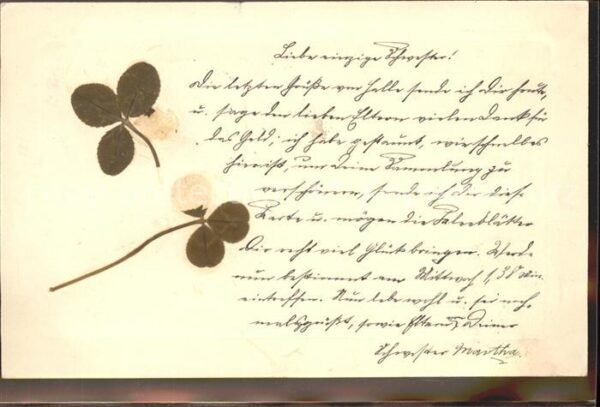 Liebe einzige Schwester!
Die letzten Grüße von Halle sende ich Dir heute,
u. sage den lieben Eltern vielen Dank für
das Geld; ich habe gestaunt, wie schnell es
hier ist, um Deine Sammlung zu
verschönern, sende ich Dir diese
Karte u. mögen die Kleeblätter
Dir recht viel Glück bringen. Werde
nun bestimmt am Mittwoch 1,38 Min
eintreffen. Nun lebe wohl u. sei noch-
mals gegrüßt, sowie Eltern, Deiner
Schwester Martha.